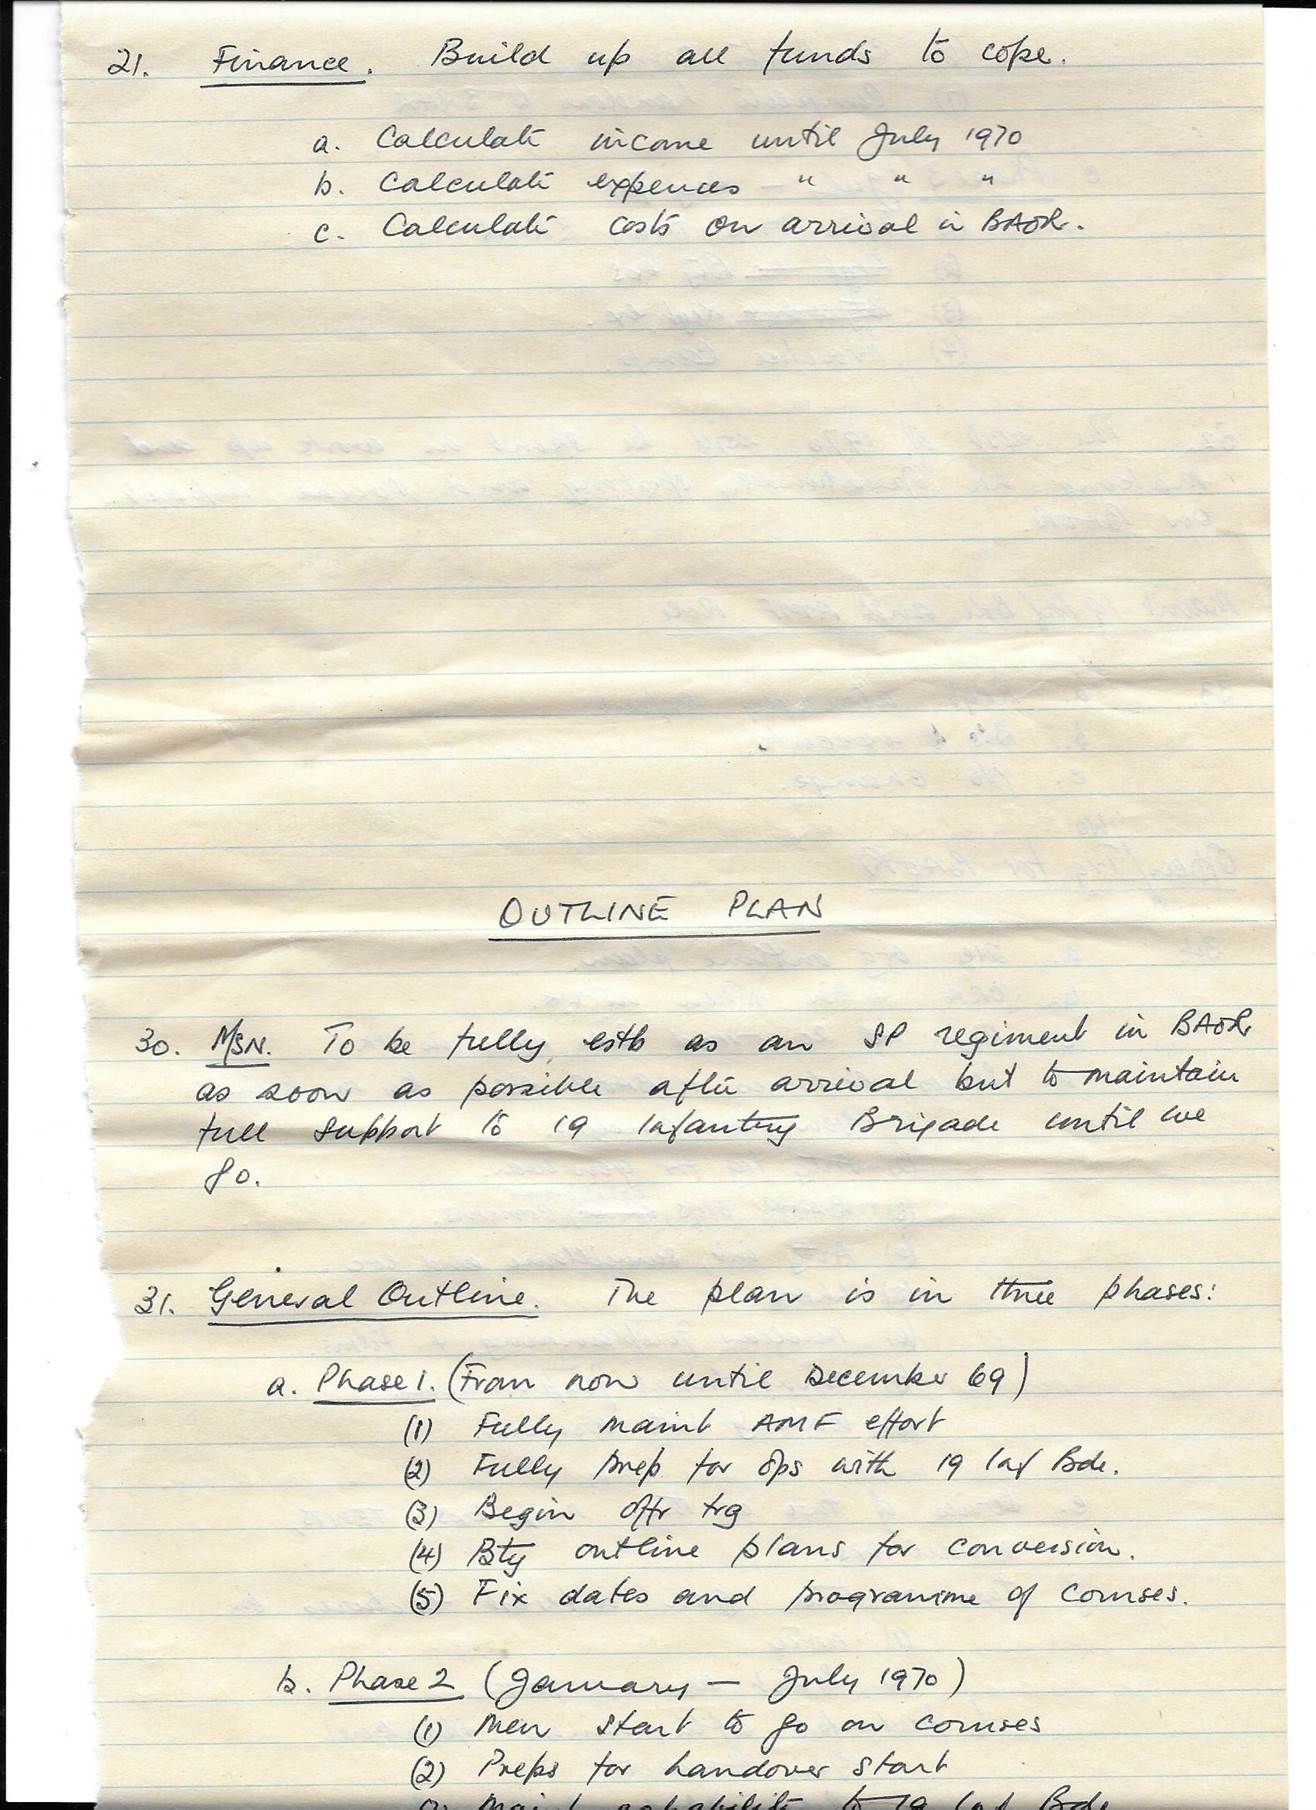 21. Finance. Build up all funds to cope.
a. Calculate income until July 1970
b. Calculate expences " " "
c. Calculate costs on arrival in BAOR.
OUTLINE PLAN
30. MSN. To be fully estb as an SP regiment in BAOR
as soon as possible after arrival but to maintain
full support to 19 Infantry Brigade until we
go.
31. General Outline. The plan is in three phases:
a. Phase 1. (From now until December 69)
(1) Fully maint AMF effort
(2) Fully prep for ops with 19 Inf Bde.
(3) Begin offr trg
(4) Bty outline plans for conversion.
(5) Fix dates and programme of courses.
b. Phase 2 (January — July 1970)
(1) Men start to go on courses
(2) Preps for handover start
capability to 19 Inf Bde